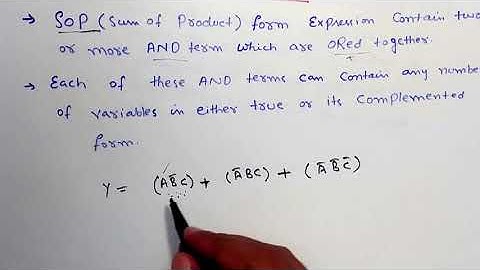 → SOP (Sum of Product) form Expression Contain two
or more AND term which are ORed together.
→ Each of these AND terms can contain any number
of variables in either true or its complemented
form.
Y = (AB̅C) + (A̅BC) + (A̅B̅C̅)